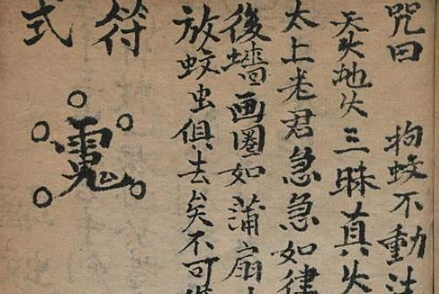 咒曰 拘蚊不動法
天火地火三昧真火
太上老君急急如律
後墙画圈如蒲扇
放蚊虫俱去矣不可
符
式